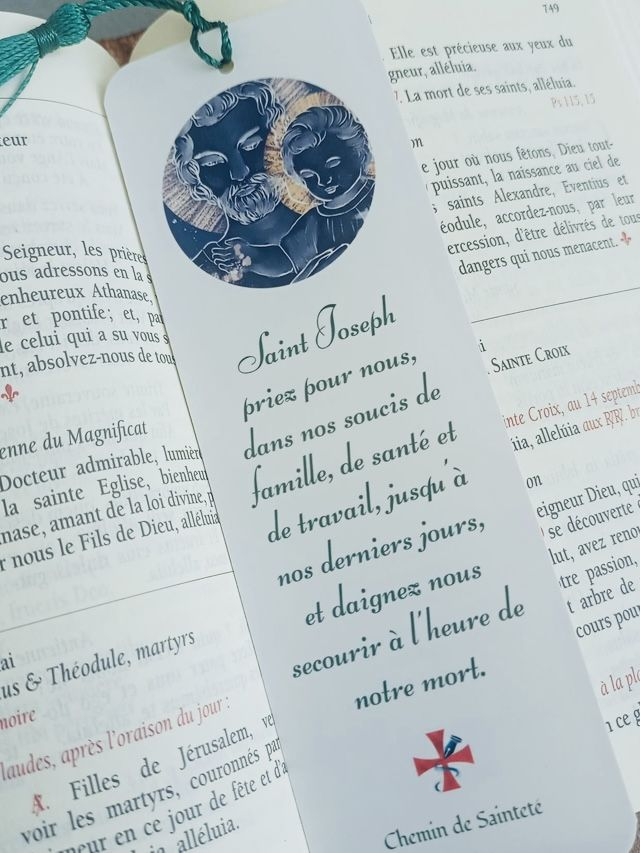 teur
Seigneur, les prières
ous adressons en la s
enheureux Athanase,
r et pontife; et, pa
le celui qui a su vous s
nt, absolvez-nous de tous
enne du Magnificat
Docteur admirable, lumière
la sainte Eglise, bienheu
nase, amant de la loi divine, p
r nous le Fils de Dieu, alléluia
ai
us & Théodule, martyrs
moire
laudes, après l'oraison du jour :
℟. Filles de Jérusalem, ve
voir les martyrs, couronnés par
gneur en ce jour de fête et d'a
alléluia.
Saint Joseph
priez pour nous,
dans nos soucis de
famille, de santé et
de travail, jusqu'à
nos derniers jours,
et daignez nous
secourir à l'heure de
notre mort.
Chemin de Sainteté
749
Elle est précieuse aux yeux du
gneur, alléluia.
La mort de ses saints, alléluia.
Ps 115, 15
on
e jour où nous fêtons, Dieu tout-
puissant, la naissance au ciel de
saints Alexandre, Eventius et
éodule, accordez-nous, par leur
ercession, d'être délivrés de tous
dangers qui nous menacent.
i
SAINTE CROIX
inte Croix, au 14 septemb
ia, alleluia aux R/R/. br
on
eigneur Dieu, qui
se découverte
lut, avez reno
tre passion,
t arbre de
cours pour
à la pla
n ce gl